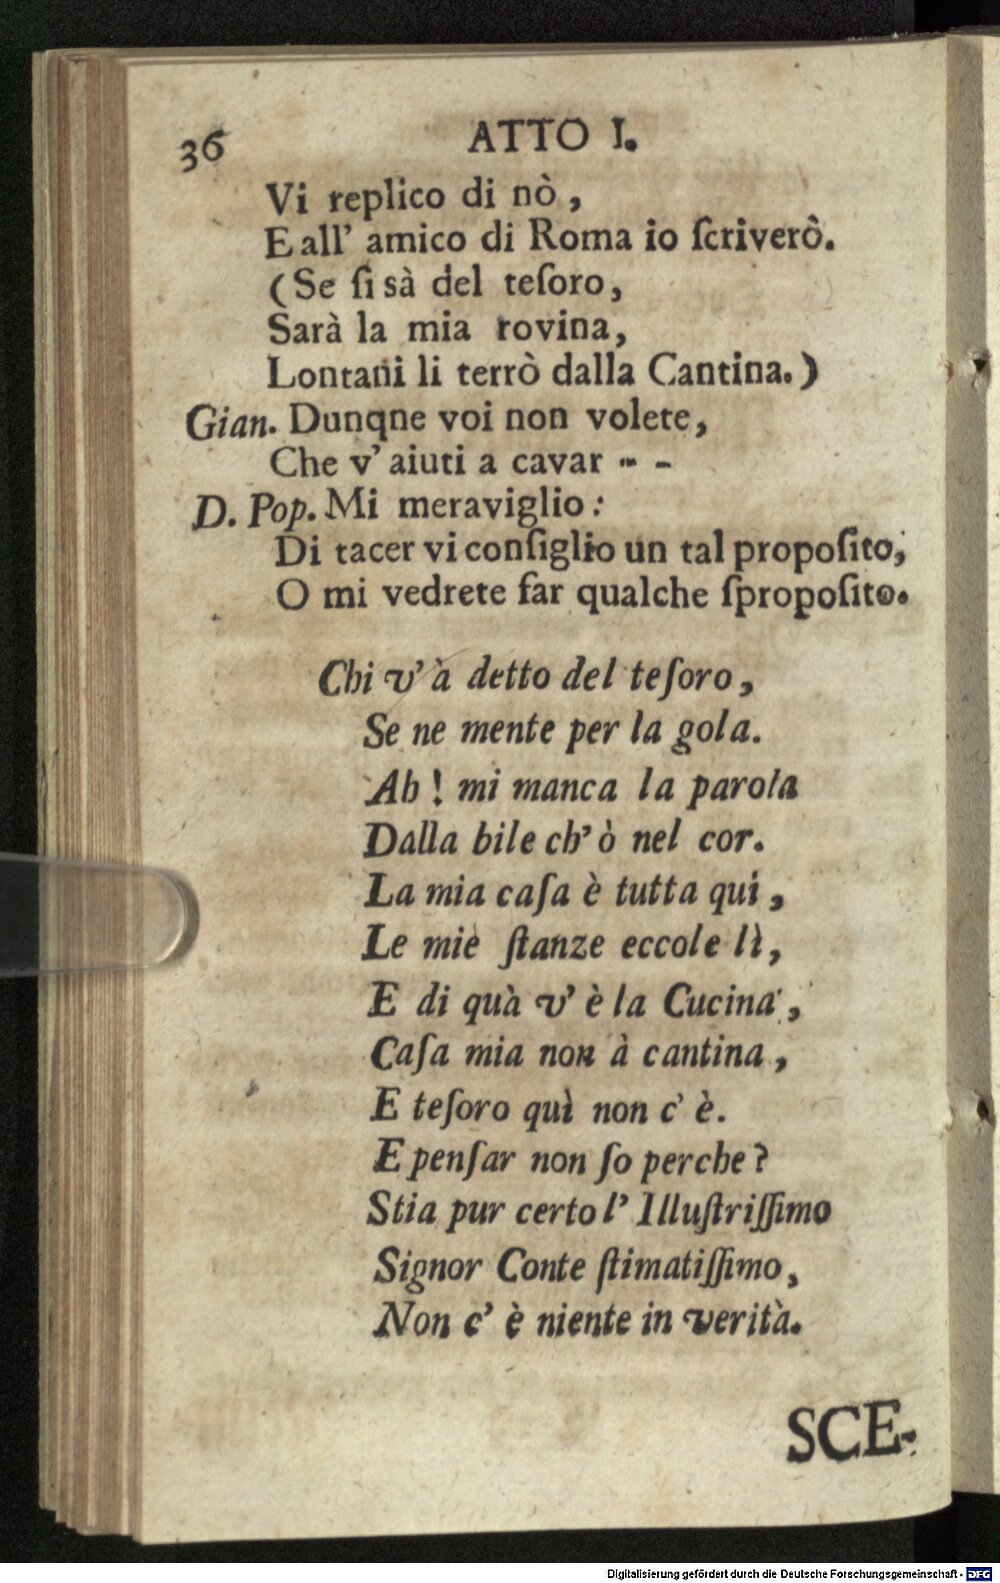 36 ATTO I.
Vi replico di nò,
E all' amico di Roma io ſcriverò.
(Se ſi sà del teſoro,
Sarà la mia rovina,
Lontani li terrò dalla Cantina.)
Gian. Dunqne voi non volete,
Che v' aiuti a cavar - -
D. Pop. Mi meraviglio:
Di tacer vi conſiglio un tal propoſito,
O mi vedrete far qualche ſpropoſito.
Chi v' à detto del teſoro,
Se ne mente per la gola.
Ah! mi manca la parola
Dalla bile ch' ò nel cor.
La mia caſa è tutta qui,
Le mie ſtanze eccole lì,
E di quà v' è la Cucina,
Caſa mia non à cantina,
E teſoro quì non c' è.
E penſar non ſo perche?
Stia pur certo l' Illuſtriſſimo
Signor Conte ſtimatiſſimo,
Non c' è niente in verità.
SCE-
Digitalisierung gefördert durch die Deutsche Forschungsgemeinschaft - DFG